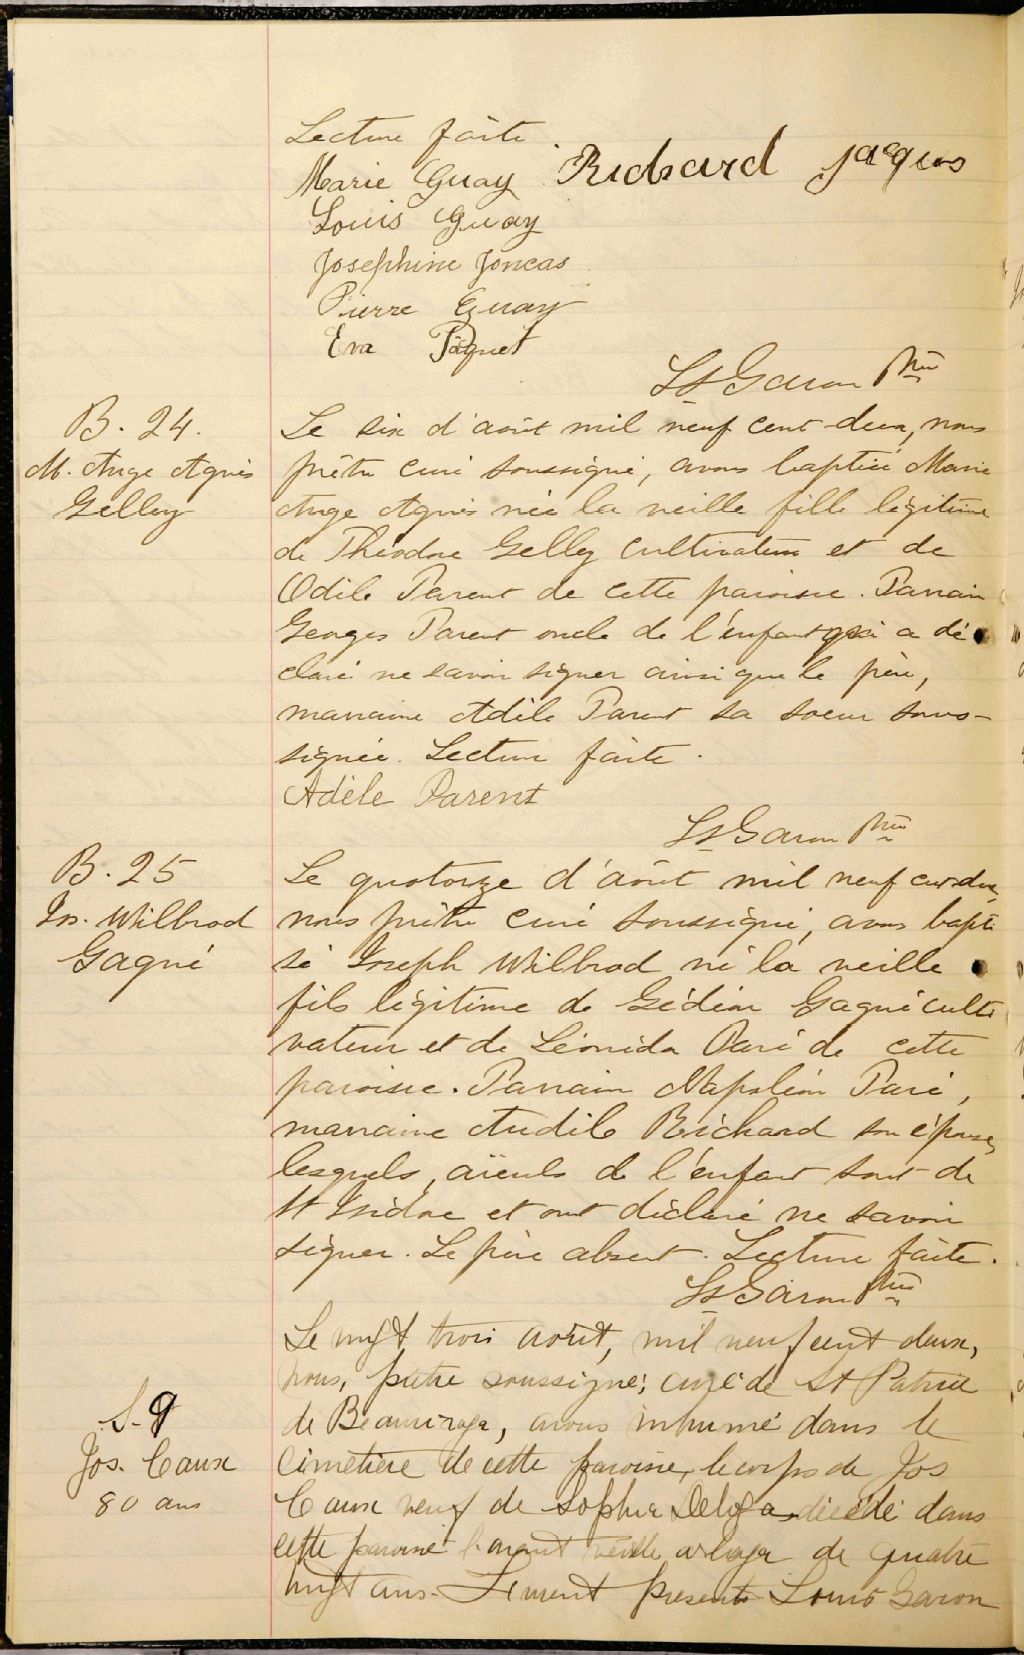 Lecture faite.
Marie Guay Richard Jacques
Louis Guay
Josephine Joncas
Pierre Guay
Eva Paquet
Ls Garon Ptre
B. 24.
M. Ange Agnès
Gelley
Le six d'août mil neuf cent deux, nous
prêtre curé soussigné, avons baptisé Marie
Ange Agnès née la veille fille légitime
de Théodore Gelley cultivateur et de
Odile Parent de cette paroisse. Parrain
Georges Parent oncle de l'enfant qui a dé
claré ne savoir signer ainsi que le père,
marraine Adèle Parent sa soeur sous-
signée. Lecture faite.
Adèle Parent
Ls Garon Ptre
B. 25
Jos. Wilbrod
Gagné
Le quatorze d'août mil neuf cent deux,
nous prêtre curé soussigné, avons bapti
sé Joseph Wilbrod né la veille
fils légitime de Gédéon Gagné culti
vateur et de Léonida Paré de cette
paroisse. Parrain Napoléon Paré,
marraine Audile Richard son épouse,
lesquels, aïeuls de l'enfant sont de
St Isidore et ont déclaré ne savoir
signer. Le père absent. Lecture faite.
Ls Garon Ptre
S. 9
Jos. Caux
80 ans
Le vingt trois août, mil neuf cent deux,
nous, prêtre soussigné, curé de St Patrice
de Beaurivage, avons inhumé dans le
cimetière de cette paroisse, le corps de Jos
Caux veuf de Sophie décédé dans
cette paroisse l'avant veille à l'age de quatre
vingt ans. Furent présents Louis Garon